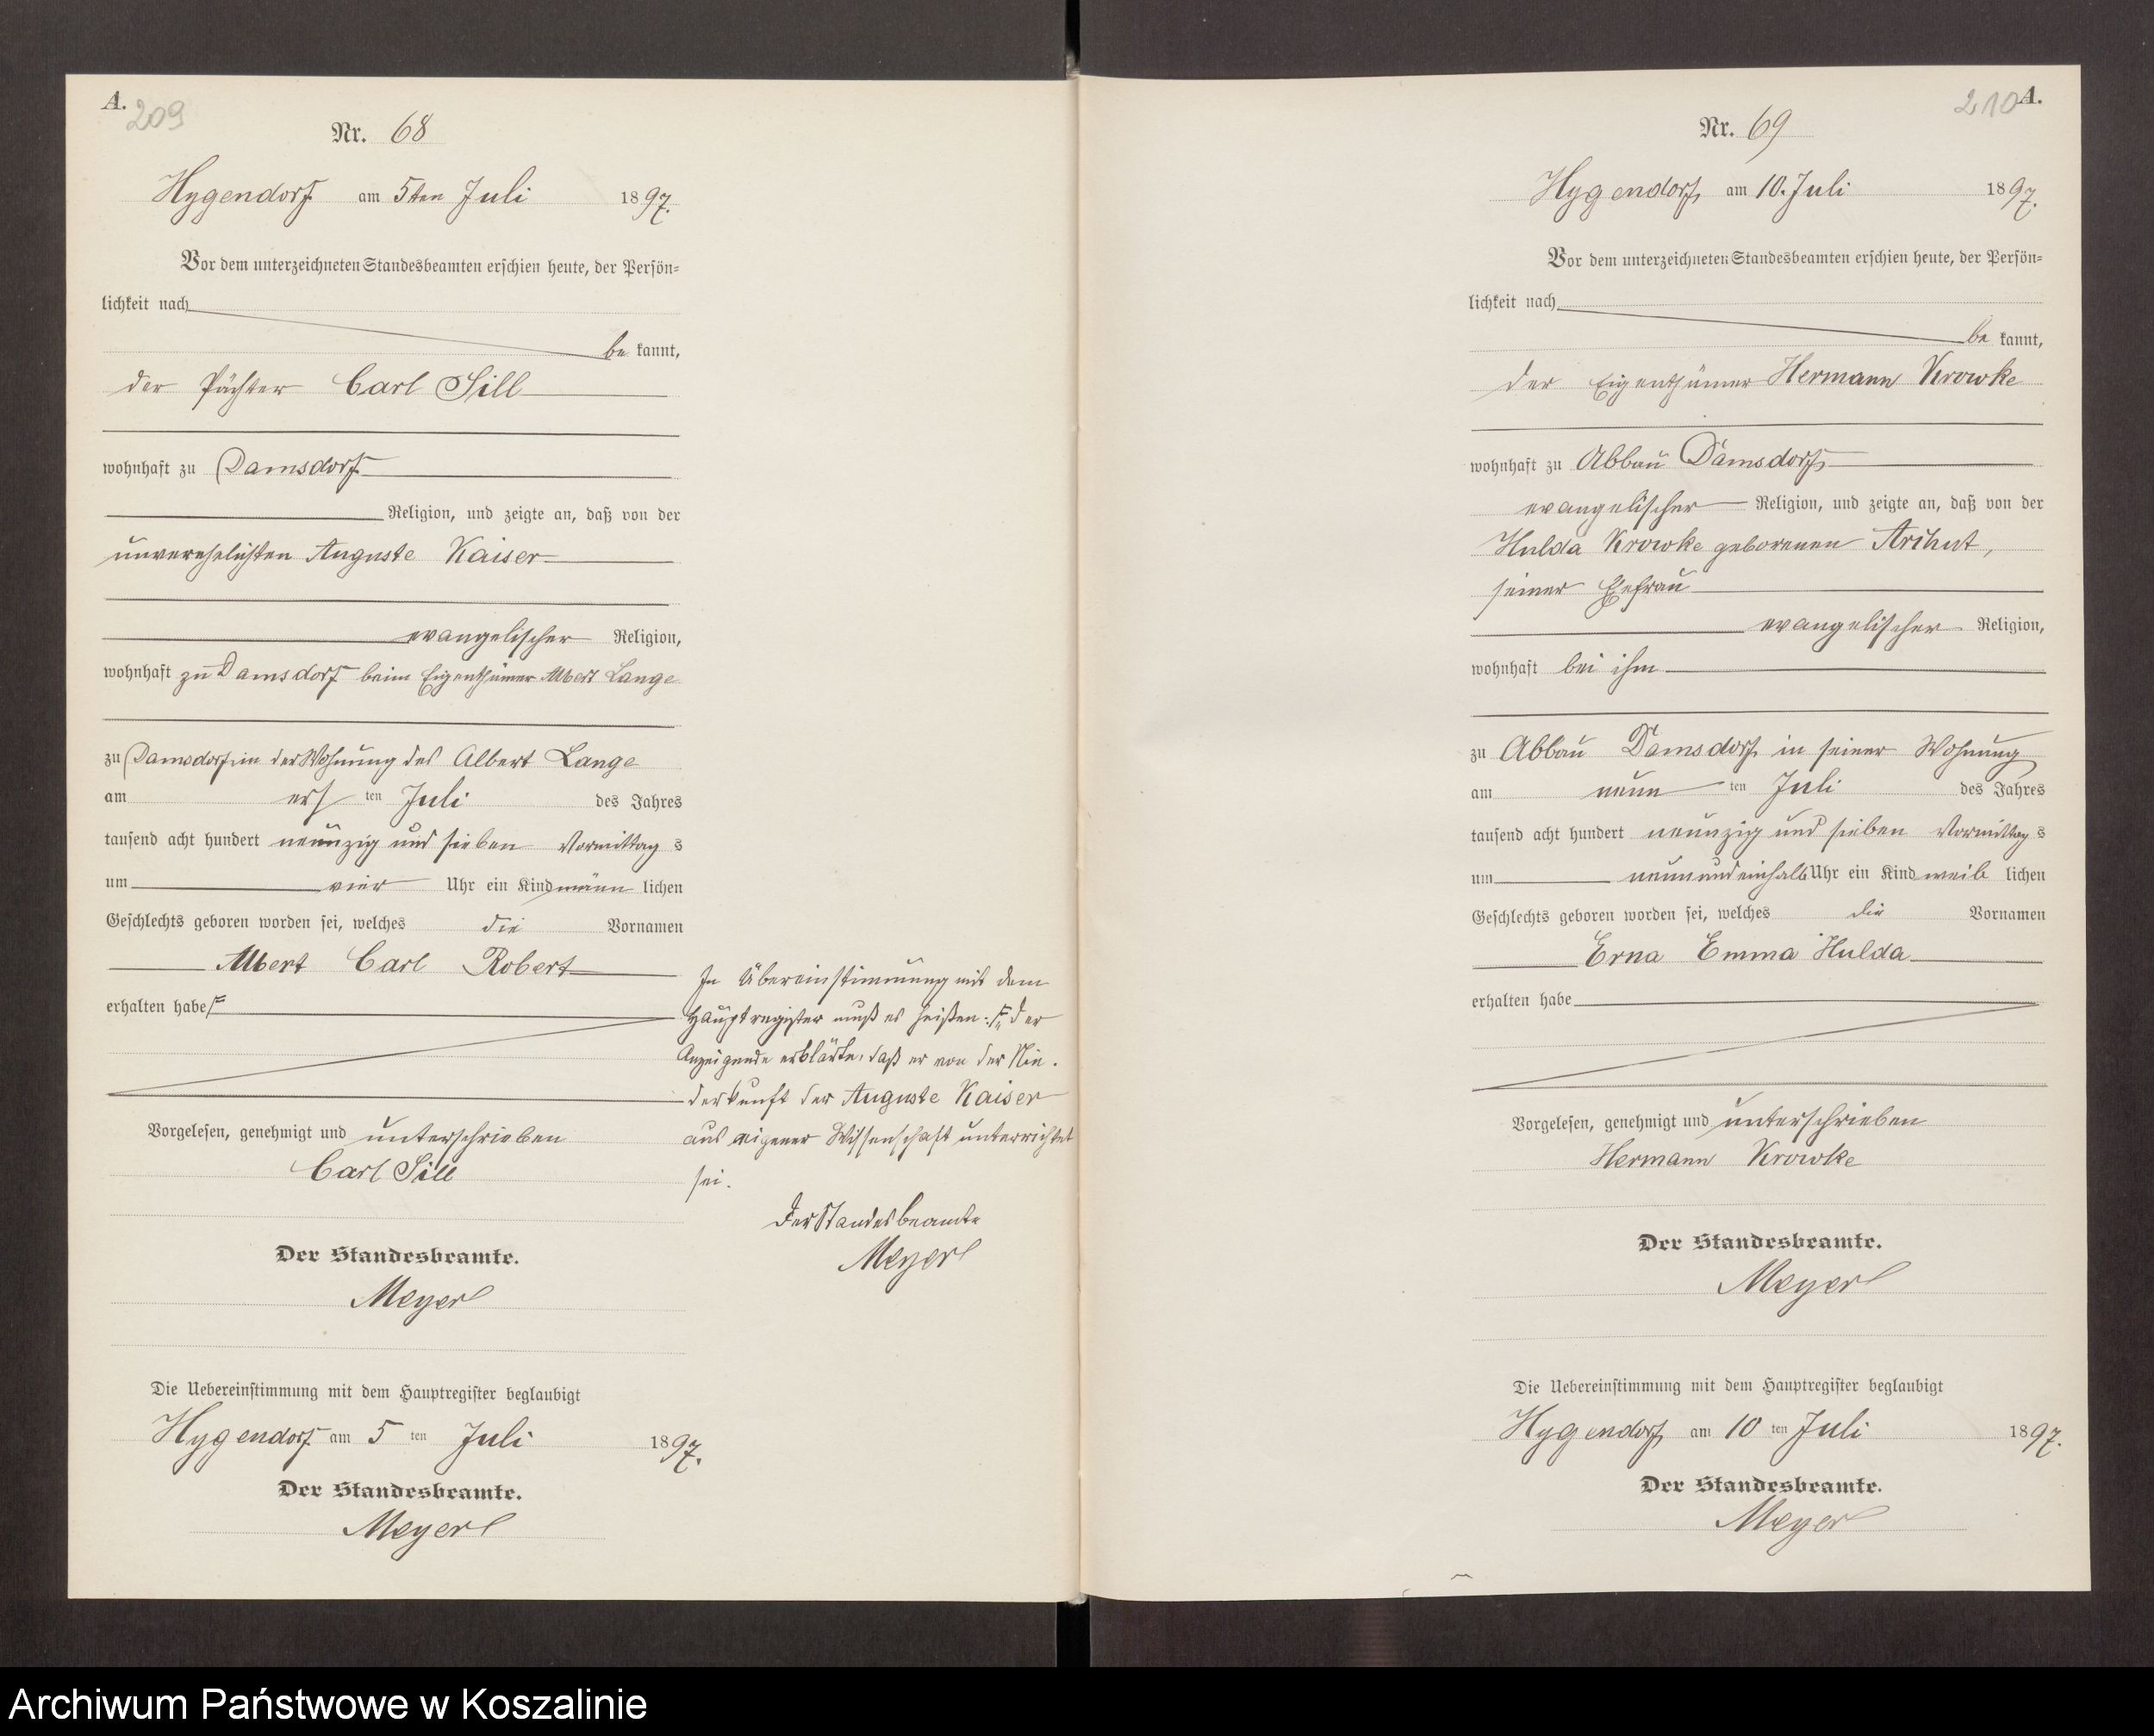 A.
209
Nr. 68
Hygendorf am 5ten Juli 1897.
Vor dem unterzeichneten Standesbeamten erschien heute, der Persön=
lichkeit nach
be kannt,
der Pächter Carl Sill
wohnhaft zu Damsdorf
Religion, und zeigte an, daß von der
unverehelichten Auguste Kaiser
evangelischer Religion,
wohnhaft zu Damsdorf beim Eigenthümer Albert Lange
zu Damsdorf in der Wohnung des Albert Lange
am ersten Juli des Jahres
tausend acht hundert neunzig und sieben Vormittags
um vier Uhr ein Kind männlichen
Geschlechts geboren worden sei, welches die Vornamen
Albert Carl Robert
erhalten habe
Vorgelesen, genehmigt und unterschrieben
Carl Sill
Der Standesbeamte.
Meyer
Die Uebereinstimmung mit dem Hauptregister beglaubigt
Hygendorf am 5ten Juli 1897.
Der Standesbeamte.
Meyer
In Übereinstimmung mit dem
Hauptregister muß es heißen: der
Anzeigende erklärte, daß er von der Nie-
derkunft der Auguste Kaiser
aus eigener Wissenschaft unterrichtet
sei.
Der Standesbeamte
Meyer
210
A.
Nr. 69
Hygendorf, am 10. Juli 1897.
Vor dem unterzeichneten Standesbeamten erschien heute, der Persön=
lichkeit nach
be kannt,
der Eigenthümer Hermann Krowke
wohnhaft zu Abbau Damsdorf
evangelischer Religion, und zeigte an, daß von der
Hulda Krowke geborenen
seiner Ehefrau
evangelischer Religion,
wohnhaft bei ihm
zu Abbau Damsdorf in seiner Wohnung
am neunten Juli des Jahres
tausend acht hundert neunzig und sieben Vormittags
um neun und einhalb Uhr ein Kind weiblichen
Geschlechts geboren worden sei, welches die Vornamen
Erna Emma Hulda
erhalten habe
Vorgelesen, genehmigt und unterschrieben
Hermann Krowke
Der Standesbeamte.
Meyer
Die Uebereinstimmung mit dem Hauptregister beglaubigt
Hygendorf, am 10ten Juli 1897.
Der Standesbeamte.
Meyer
Archiwum Państwowe w Koszalinie